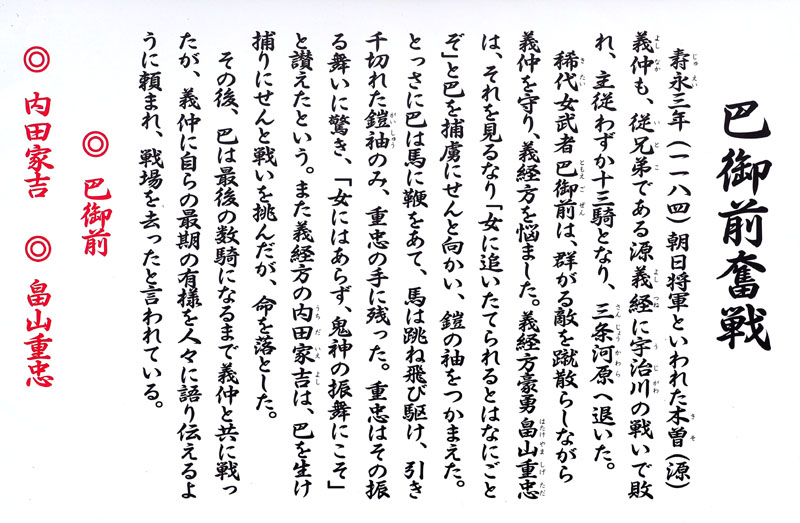 巴御前奮戦
寿永三年(一一八四)朝日将軍といわれた木曽(源)
義仲も、従兄弟である源義経に宇治川の戦いで敗
れ、主従わずか十三騎となり、三条河原へ退いた。
稀代女武者巴御前は、群がる敵を蹴散らしながら
義仲を守り、義経方を悩ました。義経方豪勇畠山重忠
は、それを見るなり「女に追いたてられるとはなにごと
ぞ」と巴を捕虜にせんと向かい、鎧の袖をつかまえた。
とっさに巴は馬に鞭をあて、馬は跳ね飛び駆け、引き
千切れた鎧袖のみ、重忠の手に残った。重忠はその振
る舞いに驚き、「女にはあらず、鬼神の振舞にこそ」
と讃えたという。また義経方の内田家吉は、巴を生け
捕りにせんと戦いを挑んだが、命を落とした。
その後、巴は最後の数騎になるまで義仲と共に戦っ
たが、義仲に自らの最期の有様を人々に語り伝えるよ
うに頼まれ、戦場を去ったと言われている。
◎ 巴御前
◎ 内田家吉 ◎ 畠山重忠